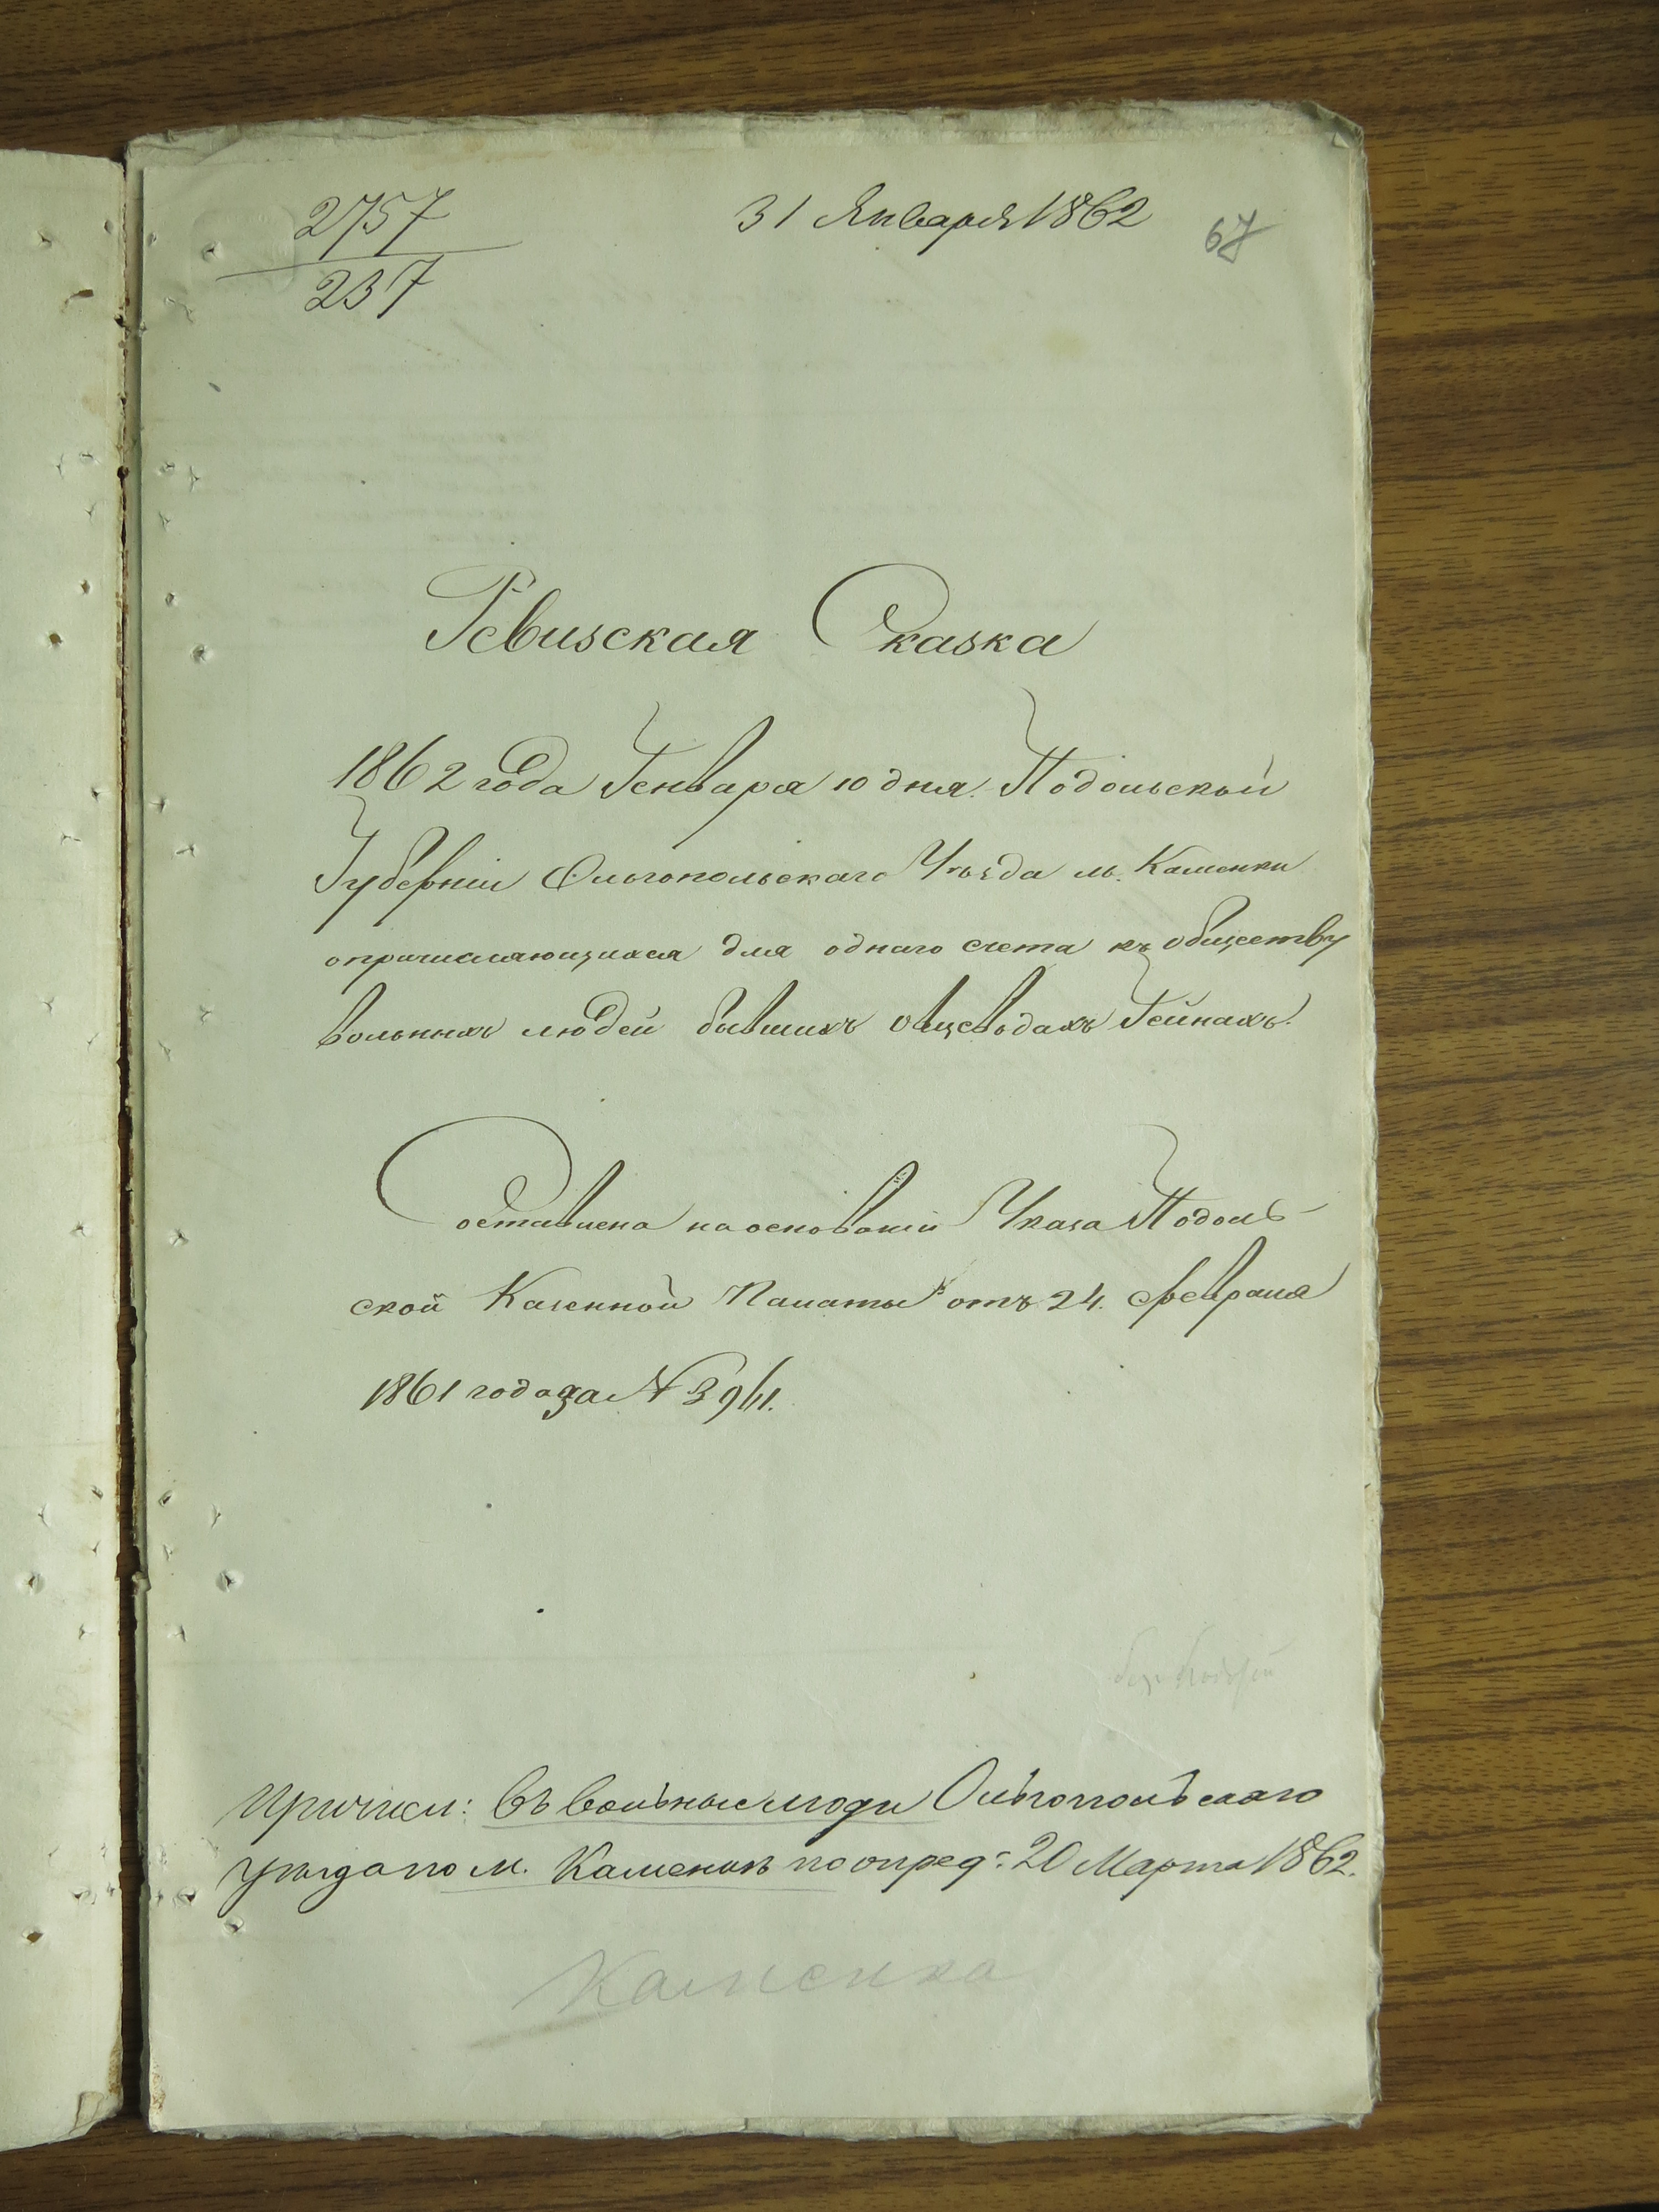 2757
237
31 Января 1862
67
Ревизская Сказка
1862 года Генваря 10 дня. Подольской
Губерніи Ольгопольскаго Уѣзда м. Каменки
опричисляющихся для однаго счета къ обществу
вольныхъ людей бывшихъ овцеводахъ Гейнахъ.
Составлена на основаніи Указа Подоль-
ской Казенной Палаты отъ 24. Февраля
1861 года за № 3941.
Причисл: въ вольные люди Ольгопольскаго
уѣзда по м. Каменкѣ по опред: 20 Марта 1862.
Каменка